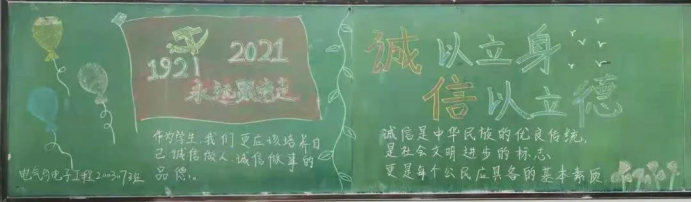 1921 2021
永远跟党走
作为学生,我们更应该培养自
己诚信做人,诚信做事的
品德。
电气与电子工程2003.7班
诚以立身
信以立德
诚信是中华民族的优良传统,
是社会文明进步的标志、
更是每个公民应具备的基本素质